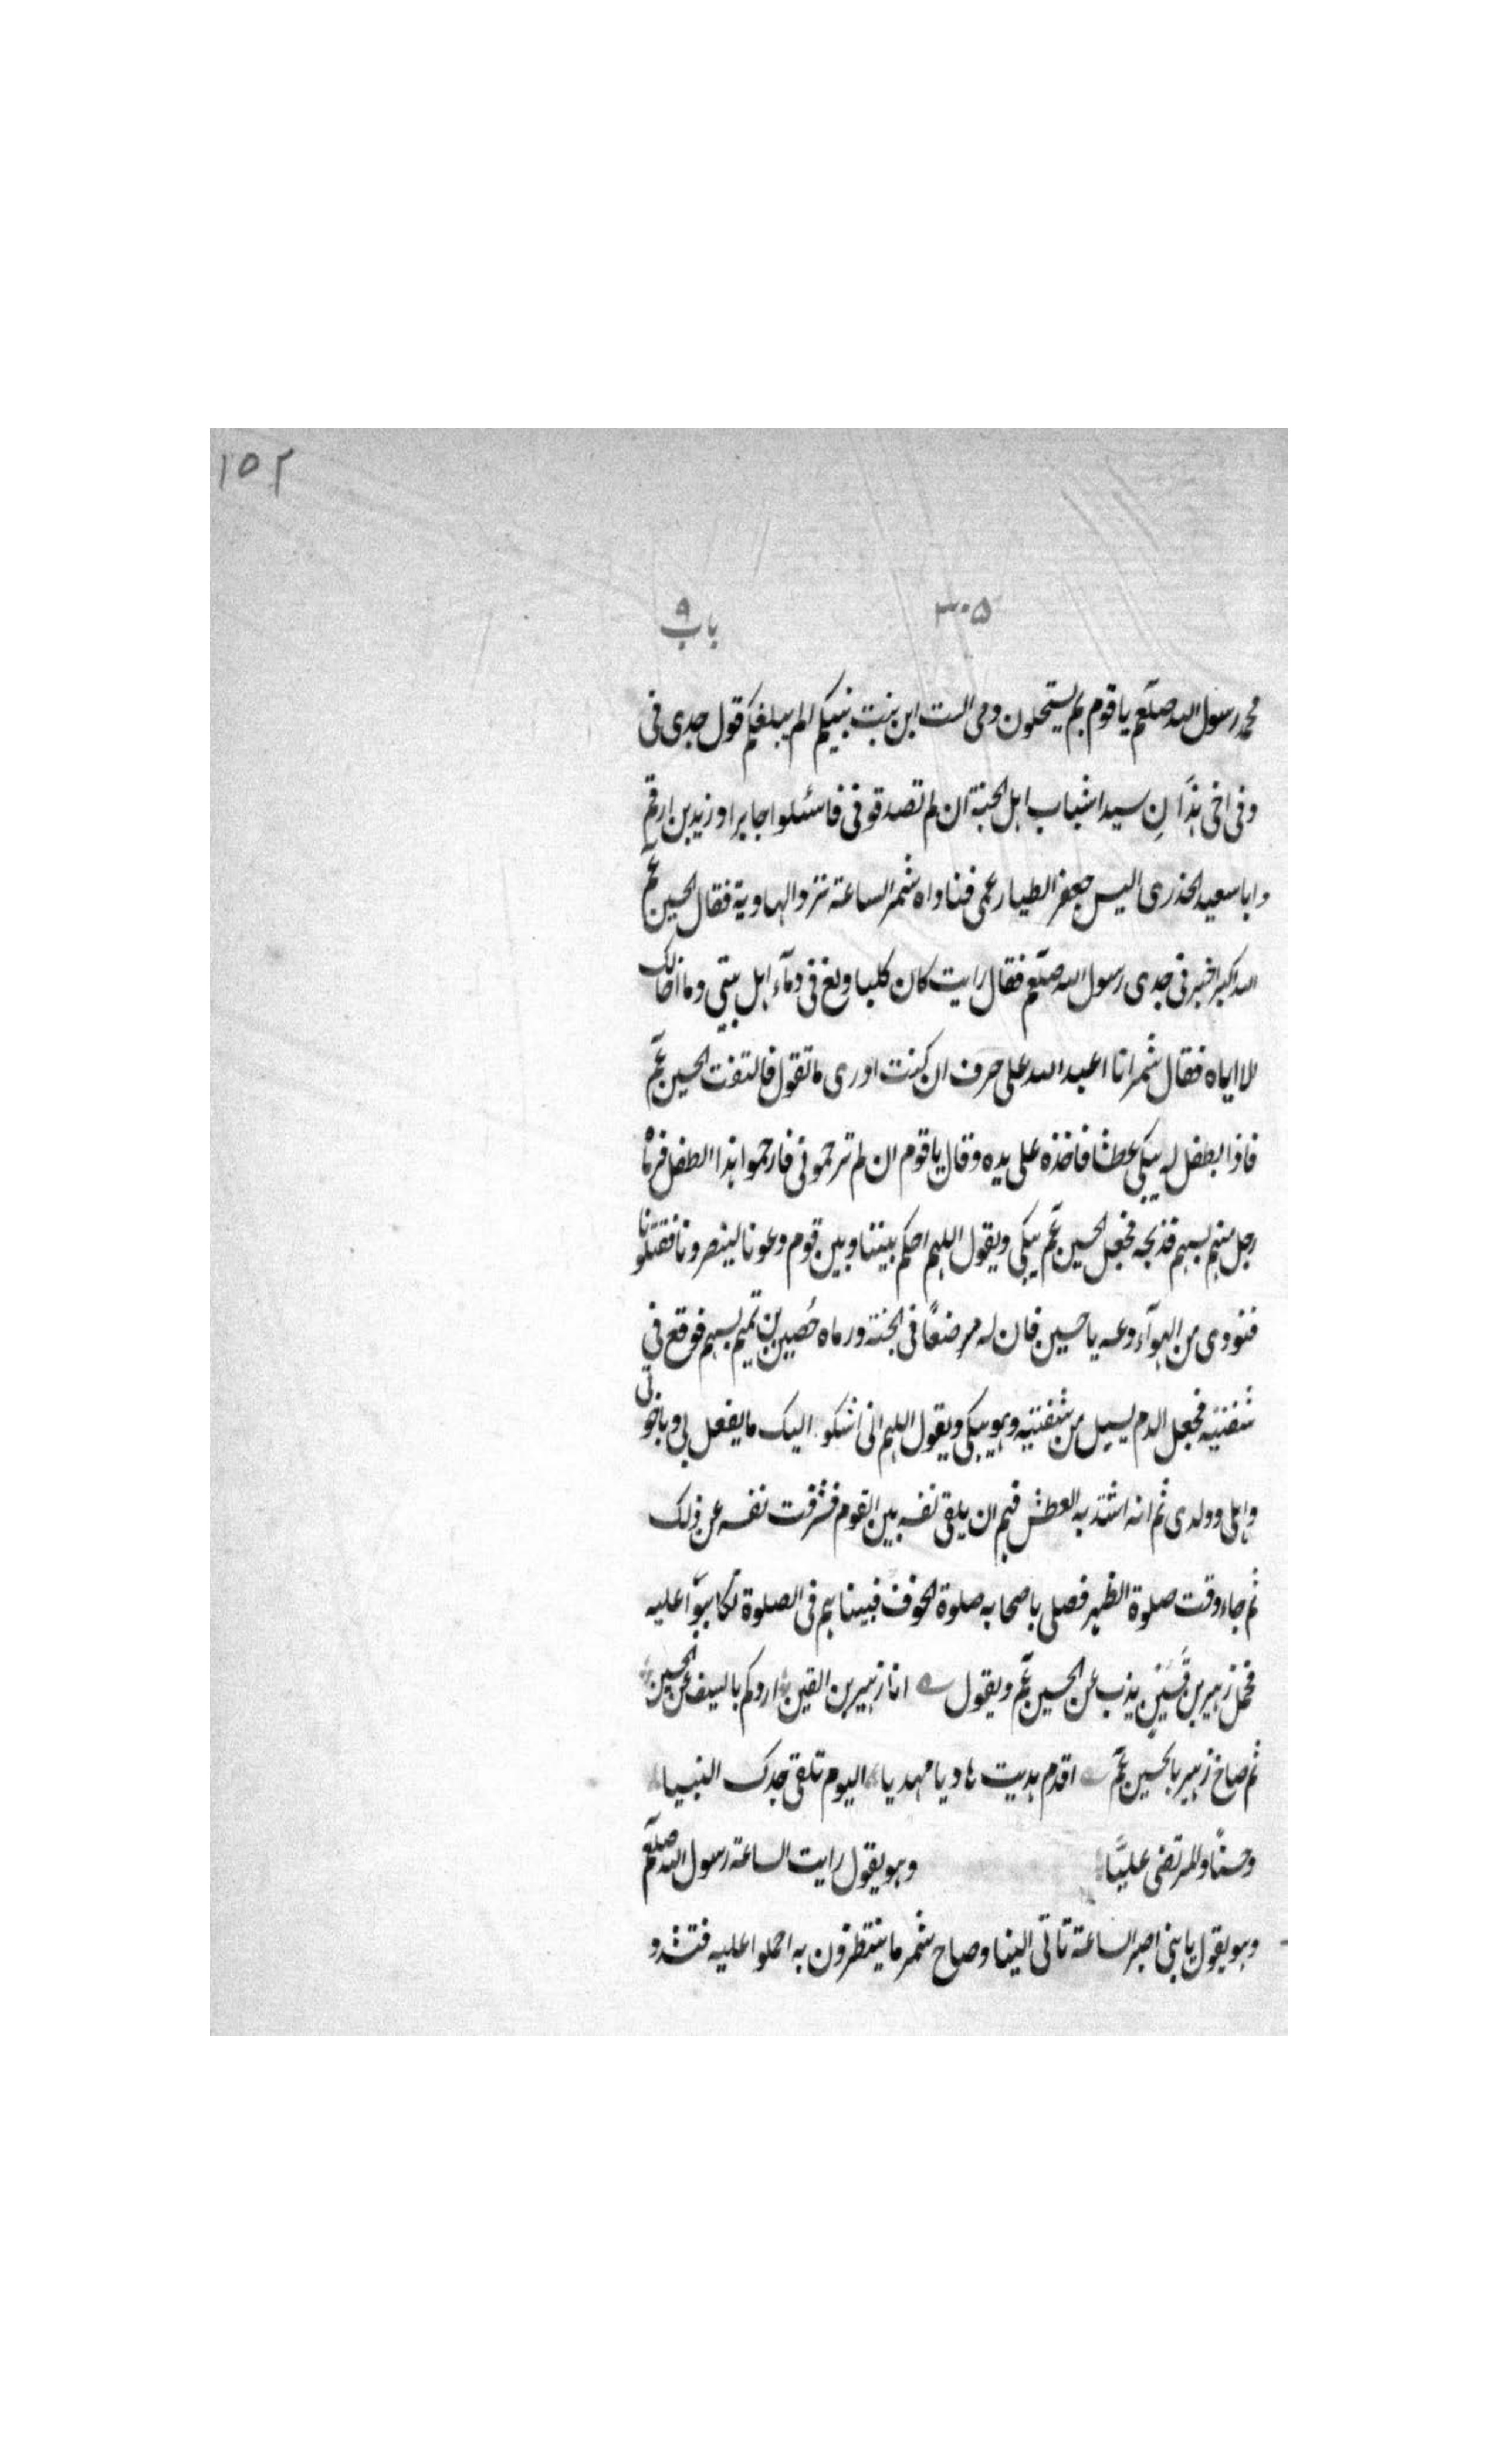 ١٥٢
٣٠٥ باب ٩
محمد رسول الله صلعم يا قوم بم يستحلون دمى الست ابن بنت نبيكم الم يبلغكم قول جدى فى
وفى اخى هذان سيدا شباب اهل الجنة ان لم تصدقونى فاسئلوا جابرا وزيد بن ارقم
وابا سعيد الخذرى اليس جعفر الطيار عمى فناداه شمر الساعة ترد الهاوية فقال الحسين عم
الله اكبر اخبرنى جدى رسول الله صلعم فقال رايت كان كلبا ولغ فى دمآء اهل بيتى وما اخالك
الا اياه فقال شمر انا اعبد الله على حرف ان كنت ادرى ما تقول فالتفت الحسين عم
فاذا بطفل له يبكى عطشا فاخذه على يده وقال يا قوم ان لم ترحمونى فارحموا هذا الطفل فرماه
رجل منهم بسهم فذبحه فجعل الحسين عم يبكى ويقول اللهم احكم بيننا وبين قوم دعونا لينصرونا فقتلونا
فنودى من الهوآء دعه يا حسين فان له مرضعًا فى الجنة ورماه حُصين بن تميم بسهم فوقع فى
شفتيه فجعل الدم يسيل من شفتيه وهو يبكى ويقول اللهم انى اشكو اليك ما يفعل بى وباخوتى
واهلى وولدى ثم انه اشتد به العطش فهم ان يلقى نفسه بين القوم فشرفت نفسه عن ذلك
ثم جاء وقت صلوة الظهر فصلى باصحابه صلوة الخوف فبينا هم فى الصلوة تكالبوا عليه
فحمل زهير بن قَين يذب عن الحسين عم ويقول انا زهير بن القين اردكم بالسيف عن الحسين
ثم صاح زهير بالحسين عم اقدم هديت هاديا مهديا اليوم تلقى جدك النبيا
وحسنًا والمرتضى عليًا وهو يقول رايت الساعة رسول الله صلعم
وهو يقول يا بنى اصبر الساعة تاتى الينا وصاح شمر ما ينتظرون به احملوا عليه فتشدو